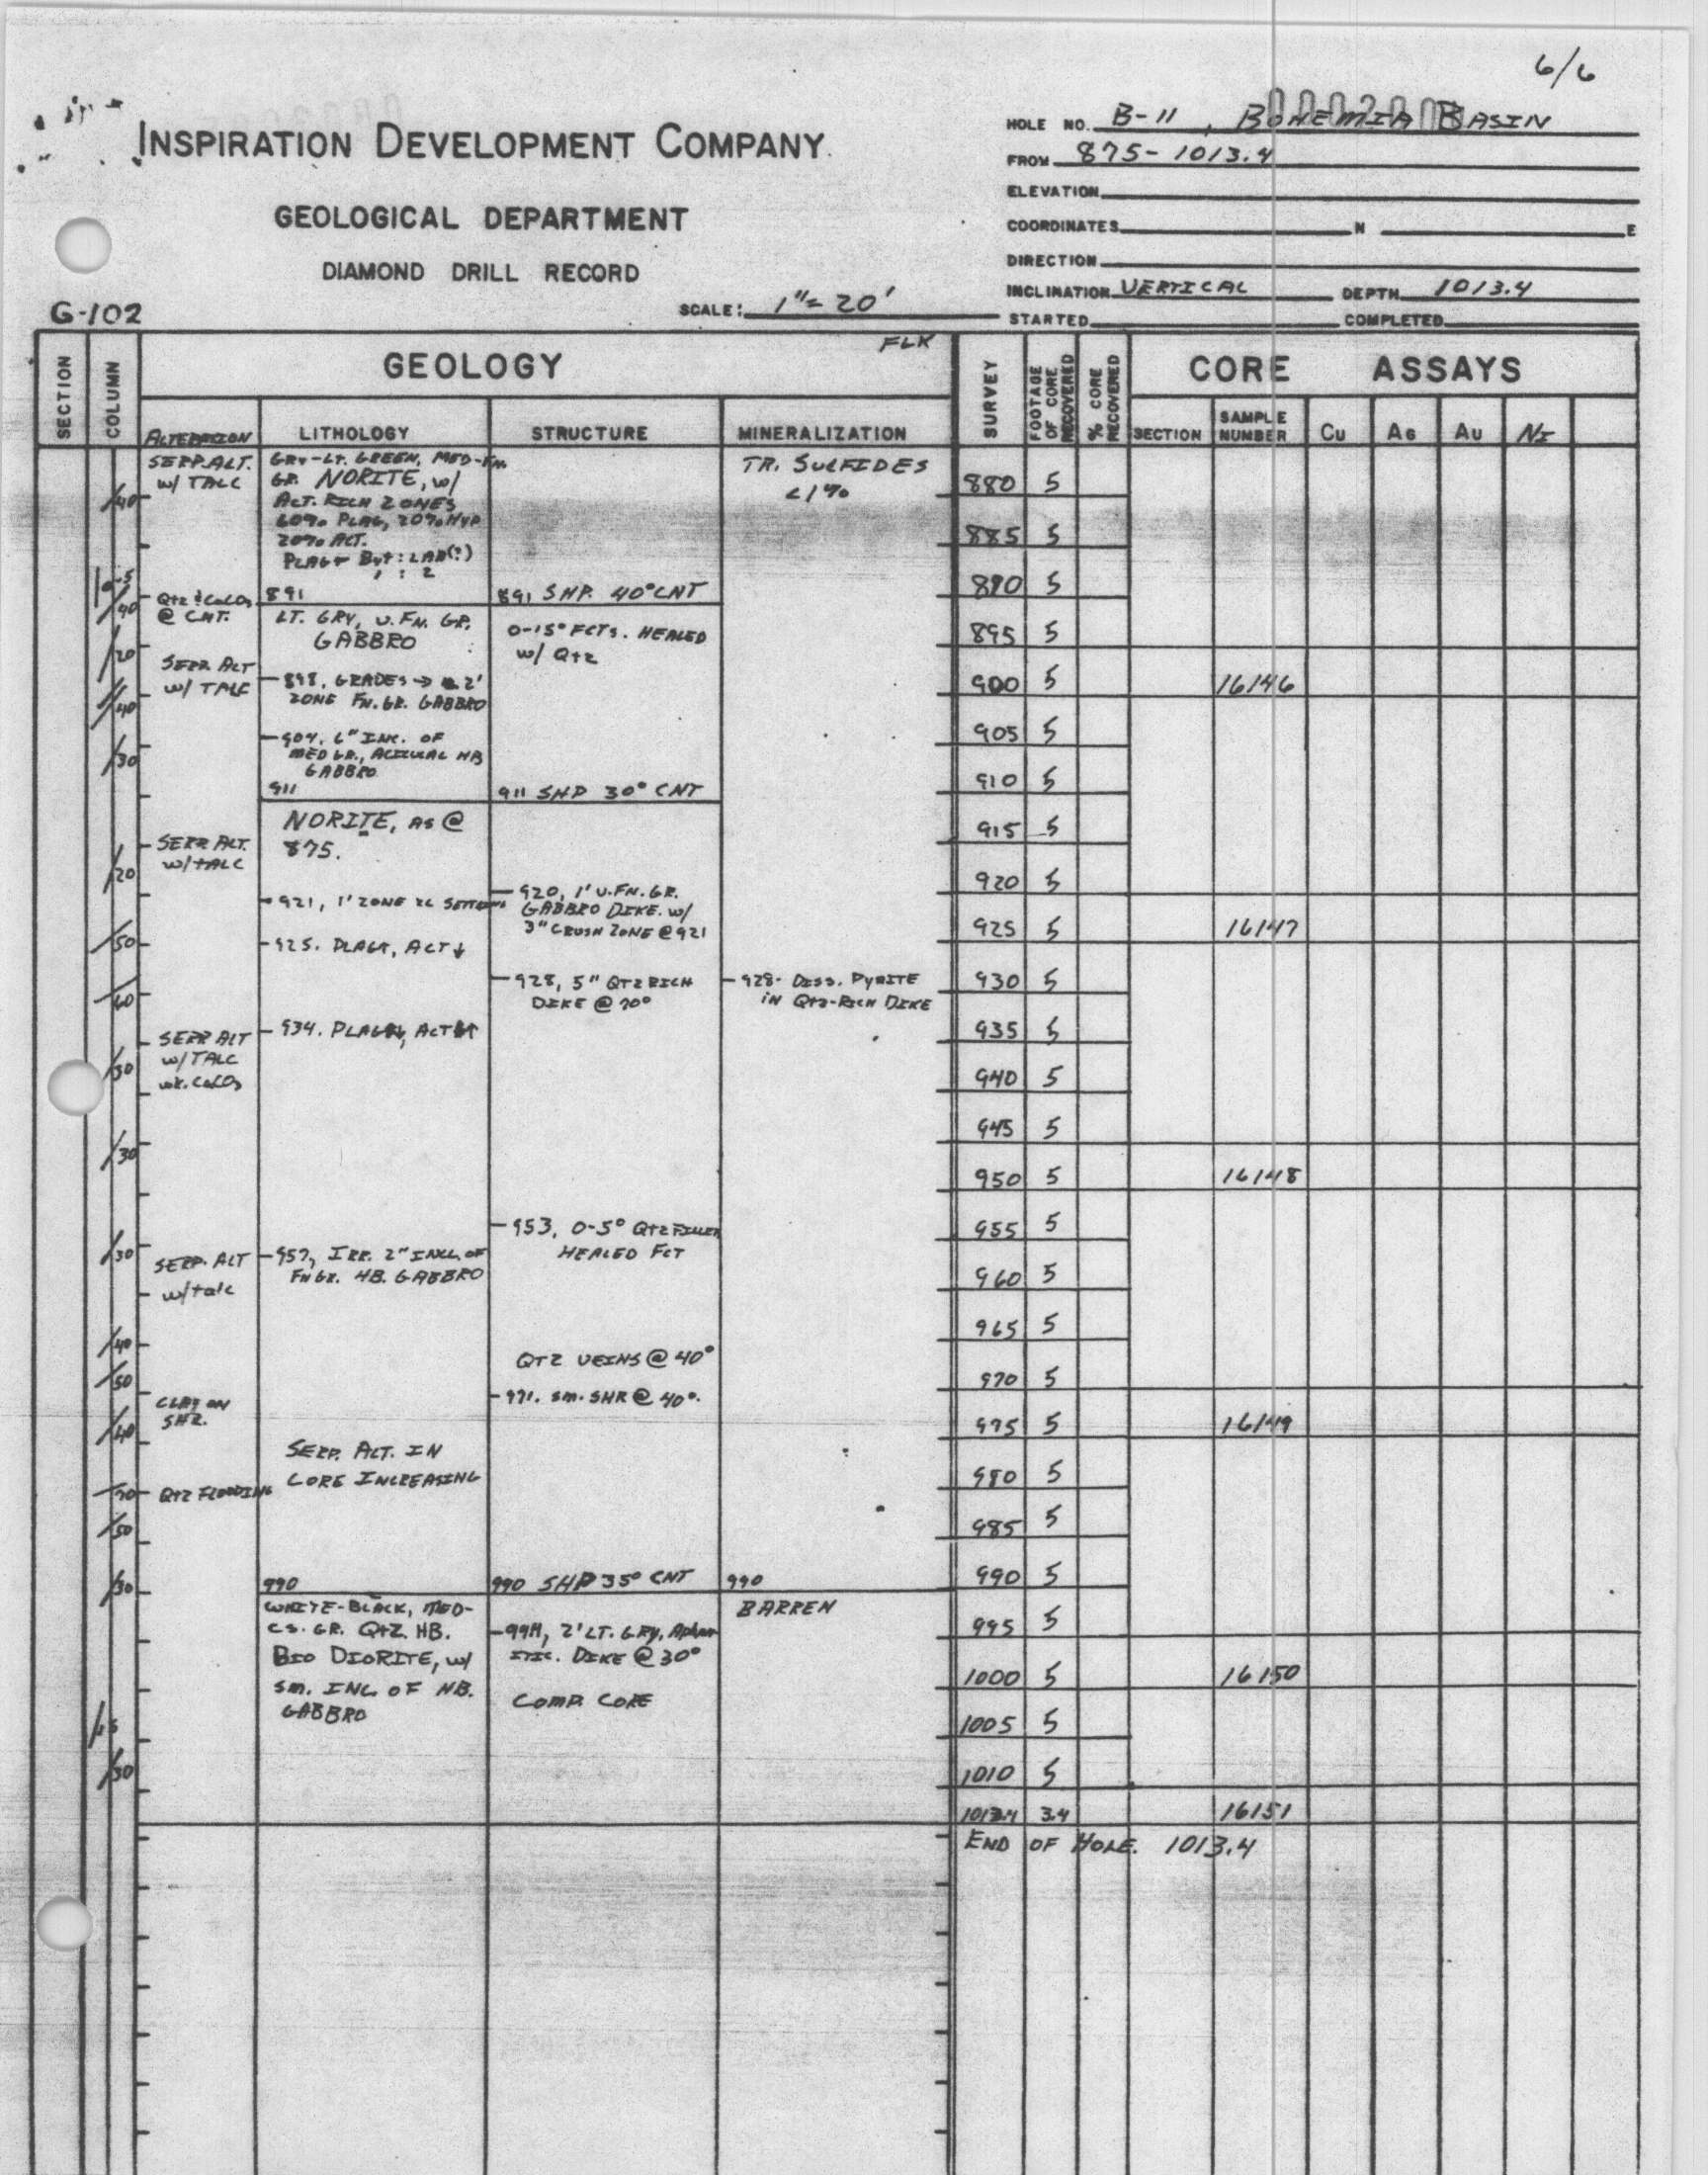 6/6
INSPIRATION DEVELOPMENT COMPANY
GEOLOGICAL DEPARTMENT
DIAMOND DRILL RECORD
G-102
SCALE: 1"= 20'
HOLE NO. B-11, BOHEMIA BASIN
FROM 875- 1013.4
ELEVATION
COORDINATES N E
DIRECTION
INCLINATION VERTICAL DEPTH 1013.4
STARTED COMPLETED
SECTION
COLUMN
GEOLOGY
FLK
SURVEY
FOOTAGE OF CORE RECOVERED
% CORE RECOVERED
CORE ASSAYS
ALTERATION LITHOLOGY STRUCTURE MINERALIZATION
SECTION SAMPLE NUMBER Cu AG AU NI
SERP. ALT.
w/ TALC
Qtz & CaCO3
@ CNT.
SERP. ALT
w/ TALC
SERP. ALT.
w/TALC
SERP ALT
w/TALC
wk. CaCO3
SERP. ALT
w/talc
CLAY ON
SHR.
QTZ FLOODING
GRY-LT. GREEN, MED-FN.
GR. NORITE, w/
ACT. RICH ZONES
60% PLAG, 20% HYP
20% ACT.
PLAG+ Byt: LAB(?)
1 : 2
891
LT. GRY, V. FN. GR.
GABBRO
-898, GRADES → 2'
ZONE FN. GR. GABBRO
-904, 6" INC. OF
MED GR., ACICULAR HB
GABBRO
911
NORITE, AS @
875.
-921, 1' ZONE
-925. PLAG↑, ACT↓
-934. PLAG↓, ACT↑
-957, IRR. 2" INCL. OF
FN GR. HB. GABBRO
SERP. ALT. IN
CORE INCREASING
990
WHITE-BLACK, MED-
CS. GR. QTZ. HB.
BIO DIORITE, w/
SM. INC. OF HB.
GABBRO
891 SHP. 40° CNT
0-15° FCTS. HEALED
w/ Qtz
911 SHP 30° CNT
-920, 1' V. FN. GR.
GABBRO DIKE. w/
3" CRUSH ZONE @ 921
-928, 5" QTZ RICH
DIKE @ 70°
-953, 0-5° QTZ FILLED
HEALED FCT
QTZ VEINS @ 40°
-971. SM. SHR @ 40°.
990 SHP 35° CNT
-994, 2' LT. GRY, APHAN
ITIC. DIKE @ 30°
COMP. CORE
TR. SULFIDES
<1%
-928- DISS. PYRITE
IN QTZ-RICH DIKE
990
BARREN
880 5
885 5
890 5
895 5
900 5 16146
905 5
910 5
915 5
920 5
925 5 16147
930 5
935 5
940 5
945 5
950 5 16148
955 5
960 5
965 5
970 5
975 5 16149
980 5
985 5
990 5
995 5
1000 5 16150
1005 5
1010 5
1013.4 3.4 16151
END OF HOLE. 1013.4
40
90
20
40
30
20
50
60
30
30
30
40
50
40
70
50
30
30